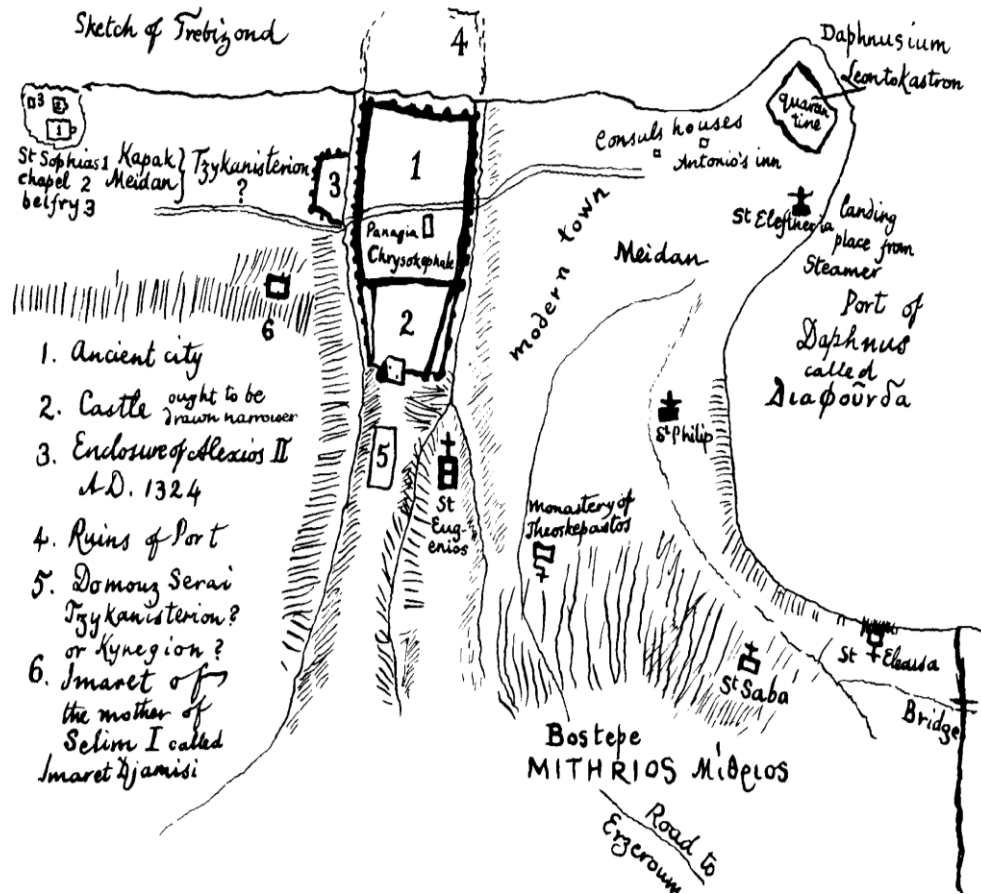 Sketch of Trebizond
4
Daphnusium
Leontokastron
quaran
tine
3 2
1
St Sophias 1
chapel 2
belfry 3
Kapak
Meidan
Tzykanisterion
?
3
1
Panagia
Chrysokephale
2
Consuls houses
Antonio's inn
modern town
Meidan
St Eleftheria
landing
place from
Steamer
Port of
Daphnus
called
Διαφοῦνδα
6
5
St
Eug-
enios
St Philip
monastery of
Theoskepastos
St Saba
St Eleousa
Bridge
Bostepe
MITHRIOS Μίθριος
Road to
Erzeroum
1. Ancient city
2. Castle ought to be
drawn narrower
3. Enclosure of Alexios II
A.D. 1324
4. Ruins of Port
5. Domouz Serai
Tzykanisterion?
or Kynegion?
6. Imaret of
the mother of
Selim I called
Imaret Djamisi